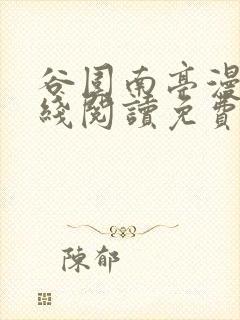 谷围南亭漫
綫閱讀免費
陳郁